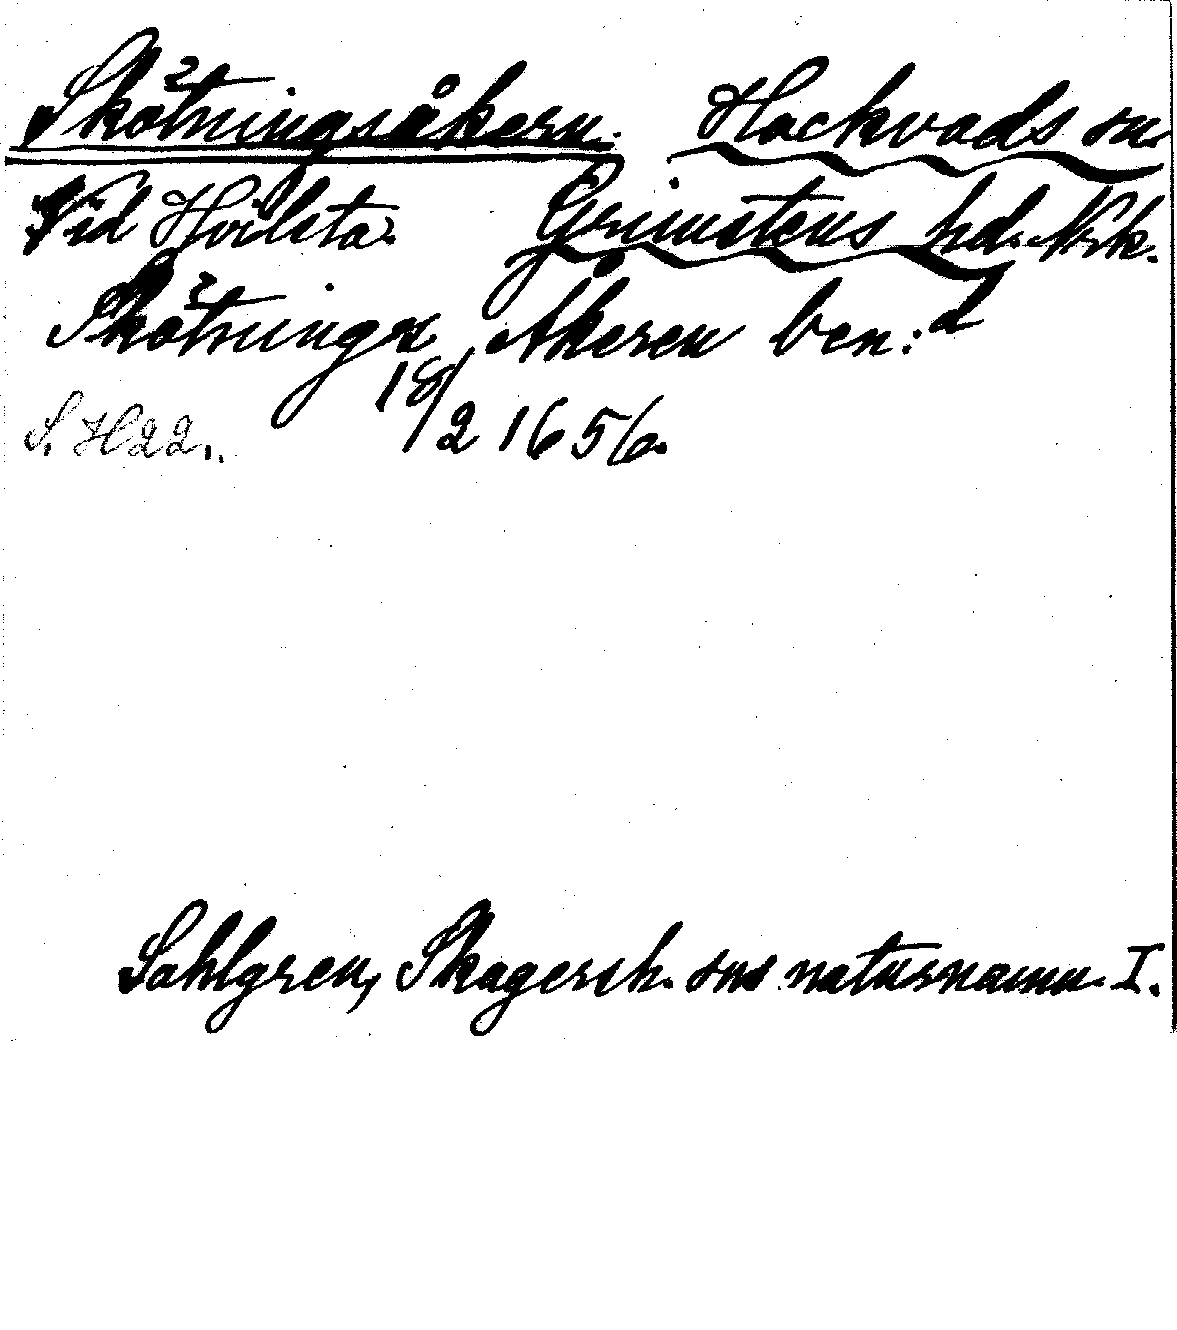 Skötningsåkern. Hackvads sn.
Vid Hvilsta. Grimstens hd. Nrk.
Skötnings Åkeren ben:d
18/2 1656.
S. H 22.
Sahlgren, Skagersh. sns naturnamn. I.